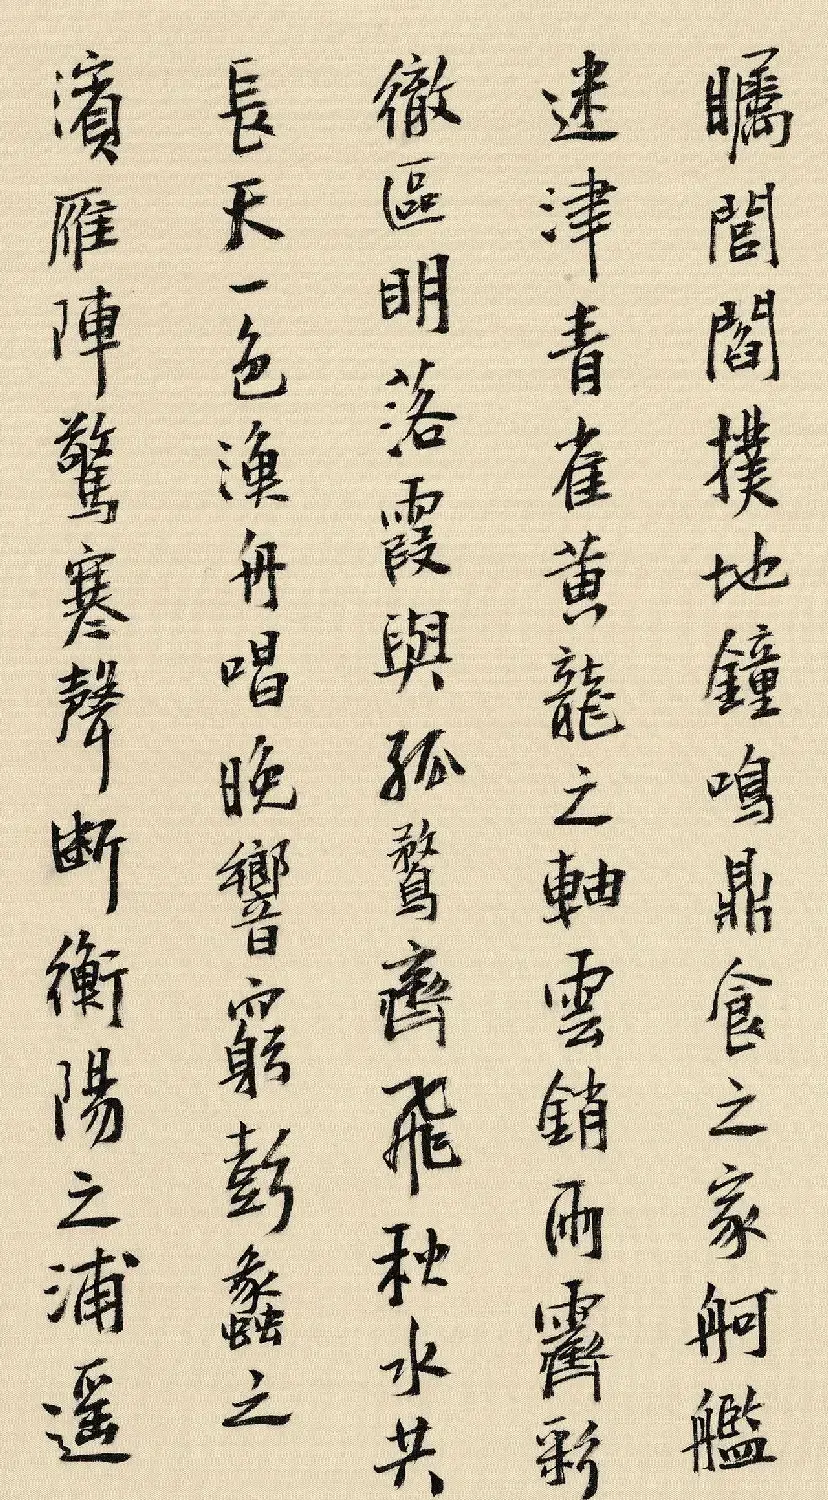 矚閭閻撲地鐘鳴鼎食之家舸艦
迷津青雀黄龍之軸雲銷雨霽彩
徹區明落霞與孤鶩齊飛秋水共
長天一色漁舟唱晚響窮彭蠡之
濱雁陣驚寒聲斷衡陽之浦遥